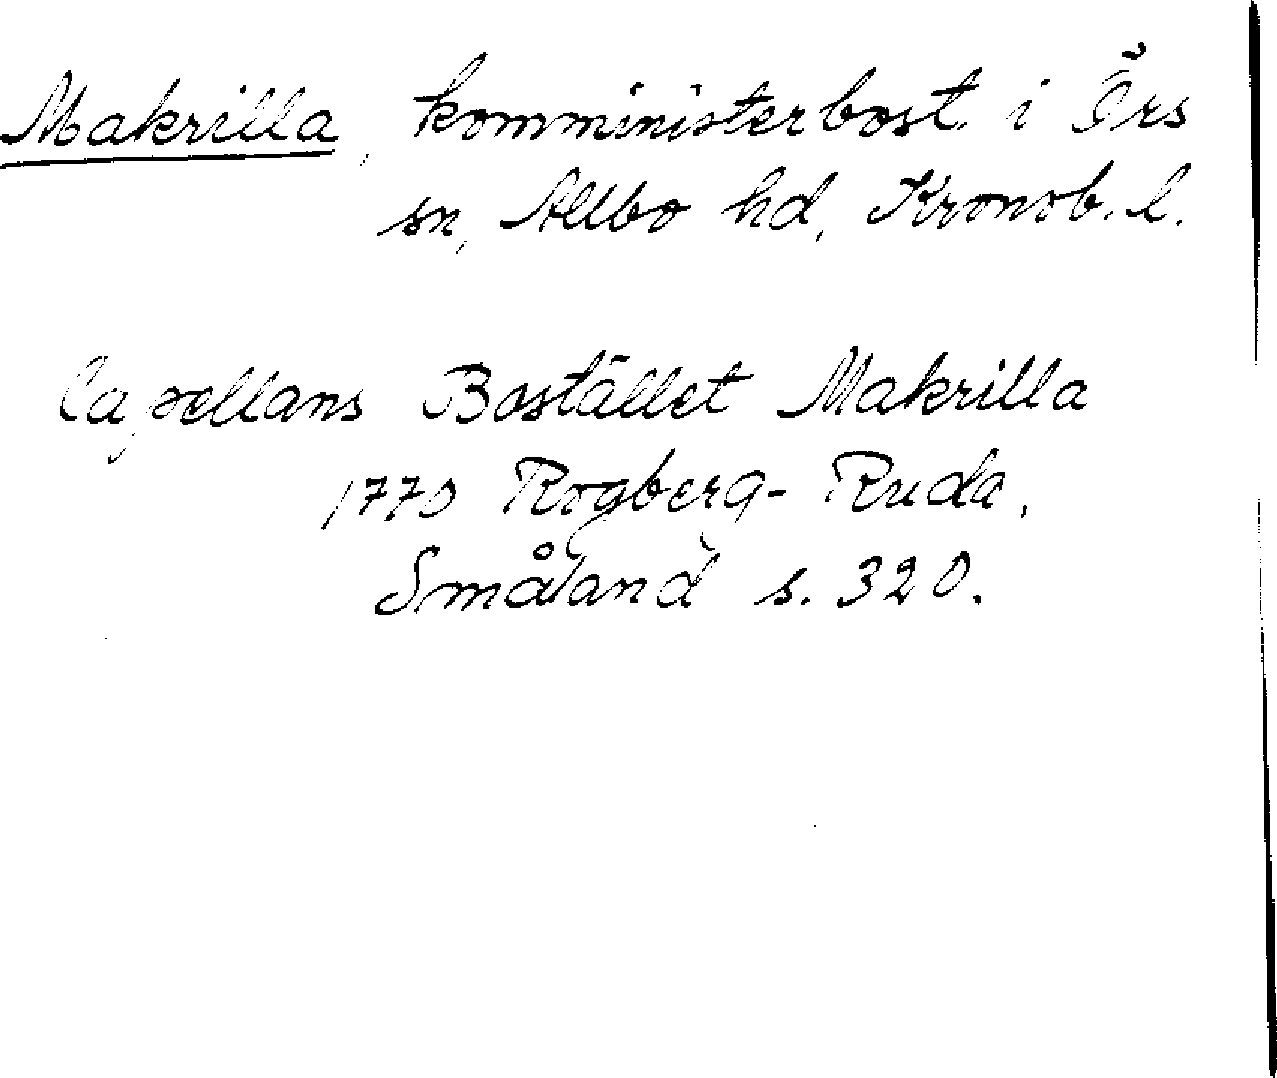 Makrilla, komministerbost. i Örs
sn, Allbo hd, Kronob. l.
Capellans Bostället Makrilla
1770 Rogberg-Ruda,
Småland s. 320.